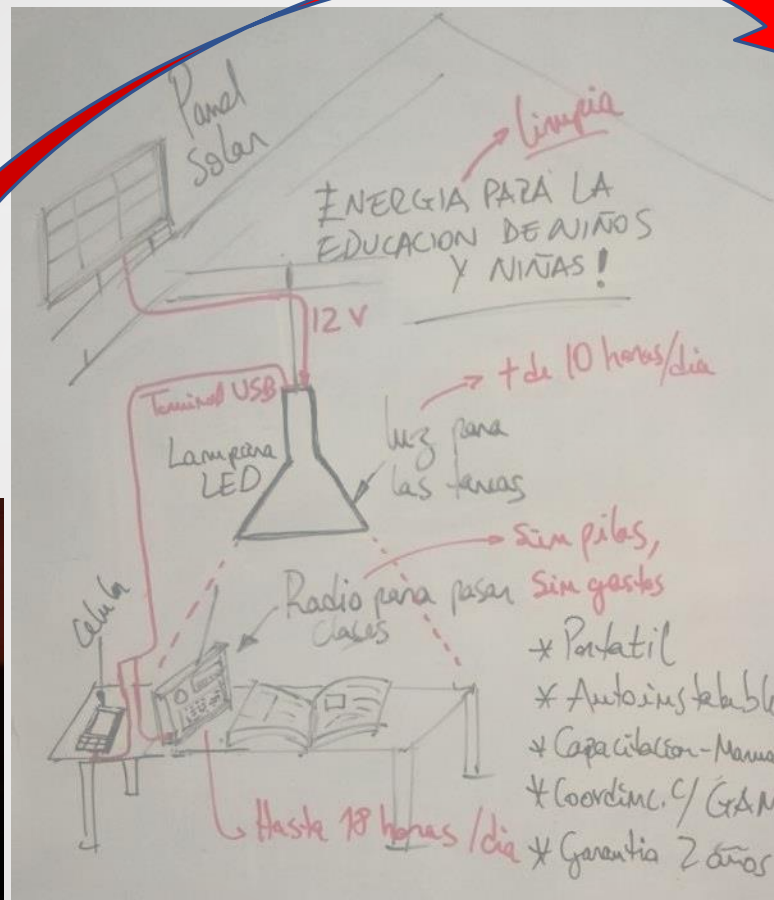 Panel
Solar
limpia
ENERGIA PARA LA
EDUCACION DE NIÑOS
Y NIÑAS!
12 V
Terminal USB
Lampara
LED
+ de 10 horas/dia
luz para
las tareas
Sin pilas,
Sin gastos
Radio para pasar
clases
Celular
* Portatil
* Autoinstalable
* Capacitacion-Manua
* Coordinc. c/ GAM
* Garantia 2 años
Hasta 18 horas/dia